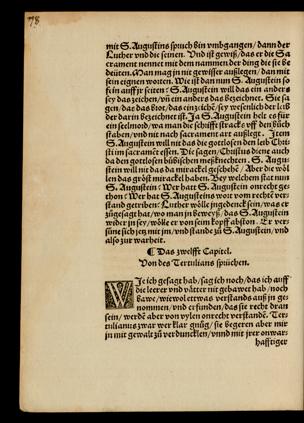 78
mit S. Augustins spruch bin vmbgangen/ dann der
Luther vnd die seinen. Vnd ist gewiß/ das er die Sa
crament nennet mit dem nammen der ding die sie be
deüten. Man mag jn nit gewisser außlegen/ dan mit
sein eignen worten. Wie ist dan nun S. Augustin so
fein auff jr seiten: S. Augustin will das ein anders
sey das zeichen/ vñ ein anders das bezeichnet. Sie sa
gen/ das das brot/ das einzichē/ sey wesenlich der leib/
der darin bezeichnet ist. Ja S. Augustin helt es für
ein seelmord/ wa man die schrifft stracks vff den bůch
staben/ vnd nit nach sacrament art außlegt. Item
S. Augustin will nit das die gottlosen den leib Chri
sti im sacramēt essen. Die sagen/ Christus diene auch
da den gottlosen bübischen meßknechten. S. Augu
stin will nit das da mirackel geschehe/ Aber die wöl
len das gröst mirackel haben. Bey welchem stat nun
S. Augustin: Wer hatt S. Augustin onrecht gez
thon: Wer hat S. Augustins wort von rechtē ver
stand getriben: Luther wölle jngedenck sein/ was er
zůgesagt hat/ wo man jn beweyß/ das S. Augustin
wider jn sey/ wölle er von seim kopff abston. Er ver
süne sich jetz mit jm/ vnd stande zů S. Augustin/ vnd
also zur warheit.
¶ Das zwelfft Capitel.
Von des Tertulians sprüchen.
WJe ich gesagt hab/ sag ich noch/ das ich auff
die leerer vnd vätter nit gebawet hab/ noch
bawe/ wiewol etwas verstands auß jn ge
nommen/ vnd erfunden/ das sie recht dran
sein/ werdē aber von vylen onrecht verstandē. Ter
tulianus zwar wer klar gnůg/ sie begeren aber mir
jn mit gewalt zů verduncklen/ vnnd mit jrer onwar
hafftiger